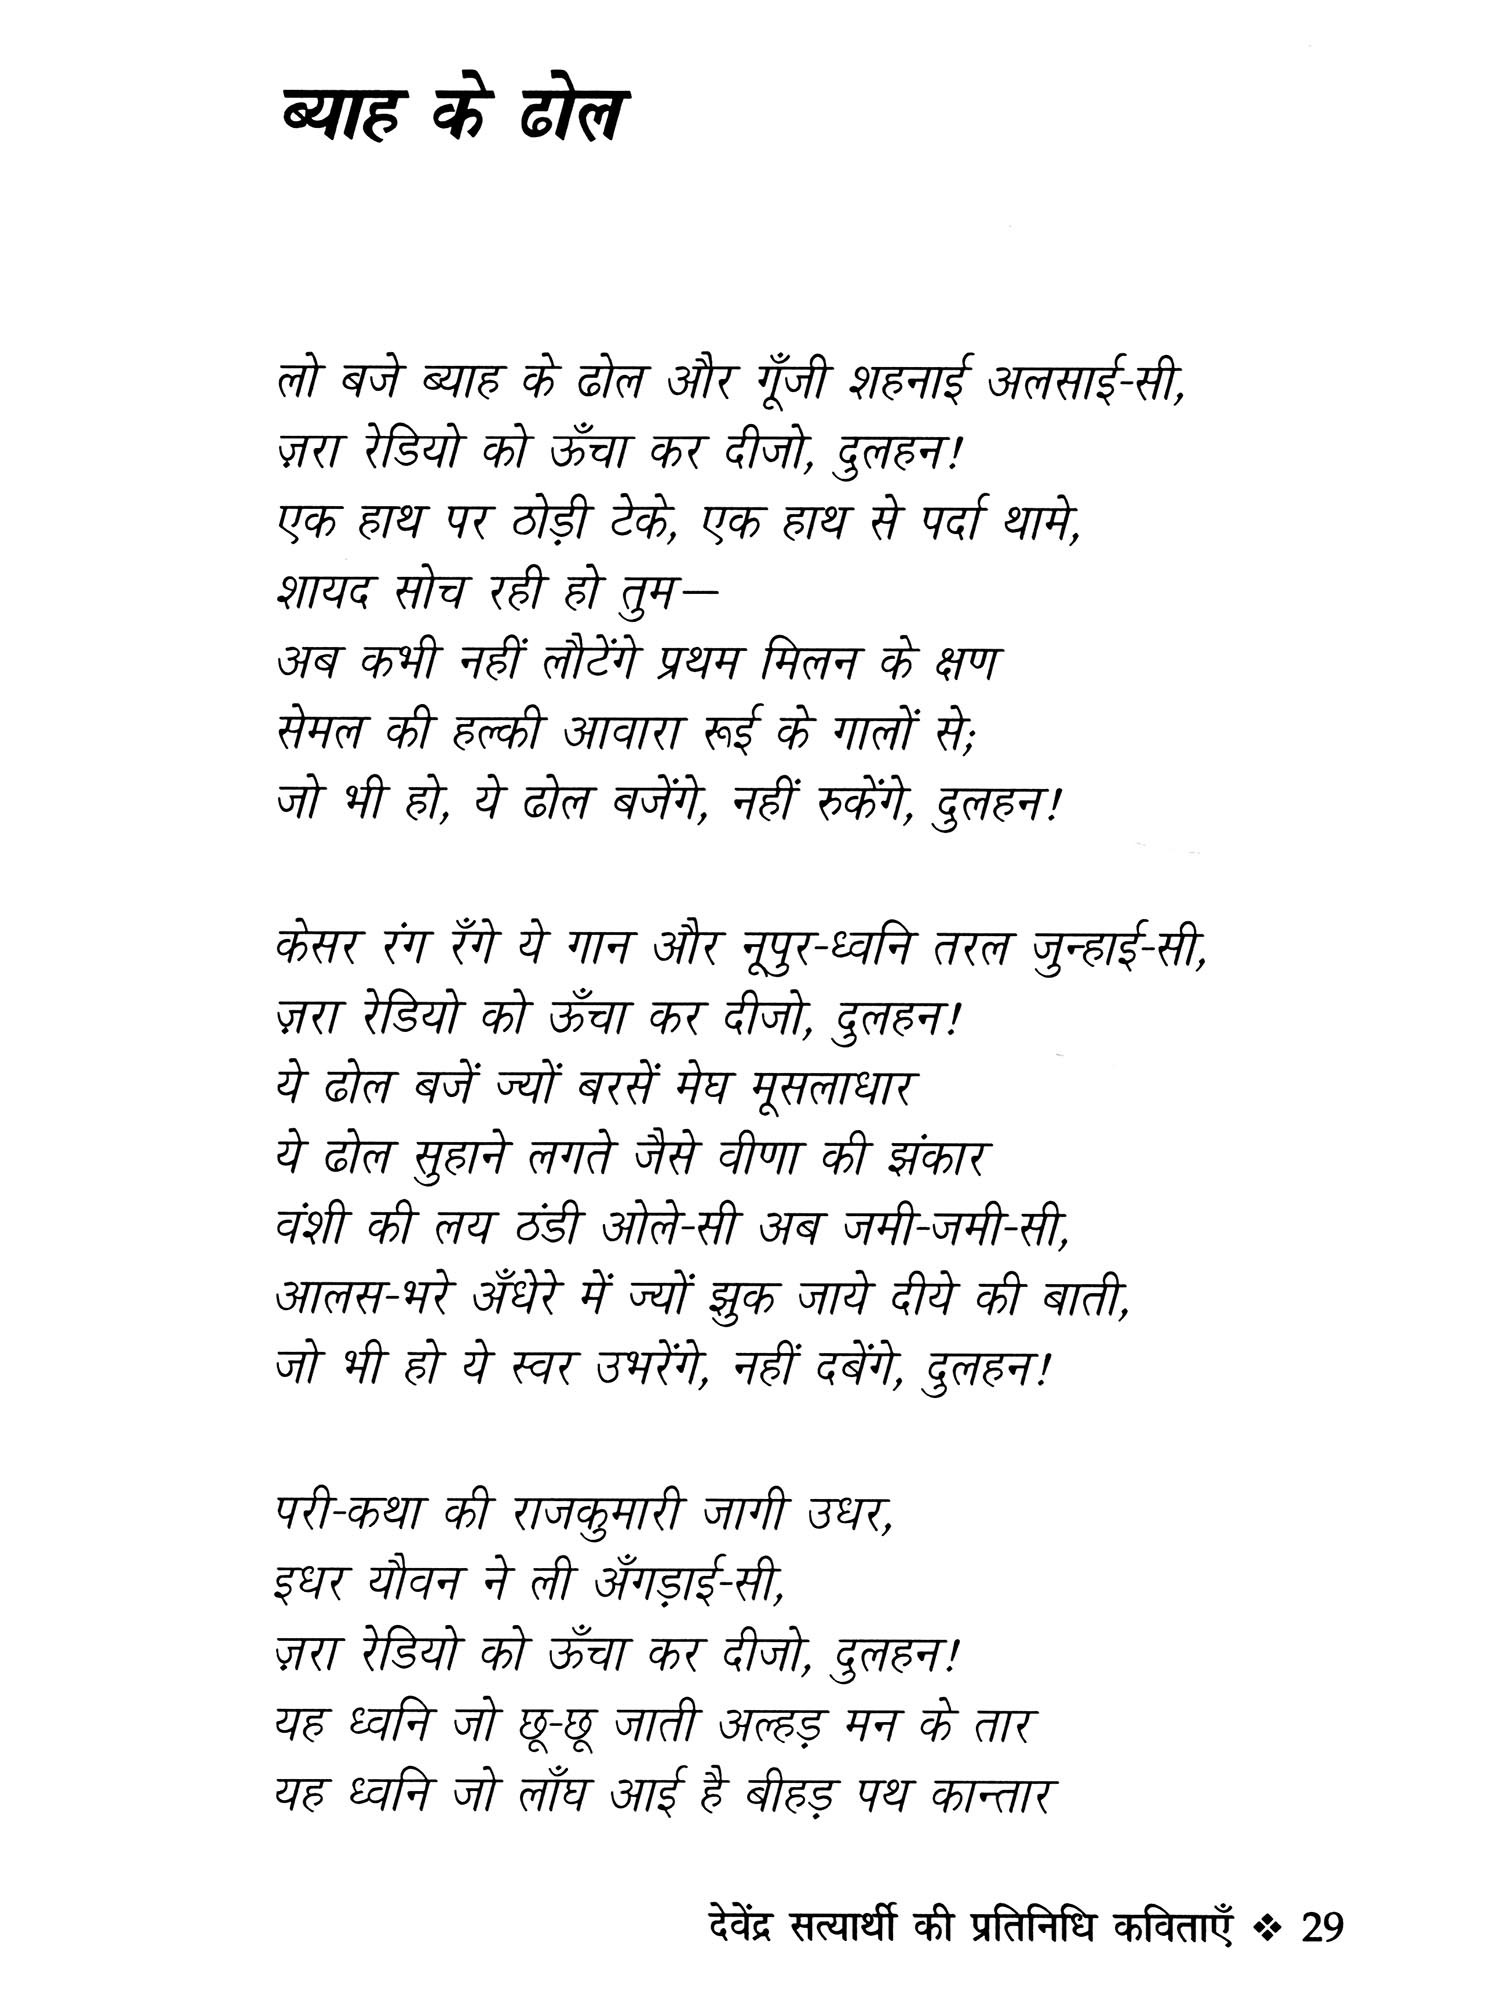 ब्याह के ढोल
लो बजे ब्याह के ढोल और गूँजी शहनाई अलसाई-सी,
ज़रा रेडियो को ऊँचा कर दीजो, दुलहन!
एक हाथ पर ठोड़ी टेके, एक हाथ से पर्दा थामे,
शायद सोच रही हो तुम—
अब कभी नहीं लौटेंगे प्रथम मिलन के क्षण
सेमल की हल्की आवारा रूई के गालों से;
जो भी हो, ये ढोल बजेंगे, नहीं रुकेंगे, दुलहन!
केसर रंग रँगे ये गान और नूपुर-ध्वनि तरल जुन्हाई-सी,
ज़रा रेडियो को ऊँचा कर दीजो, दुलहन!
ये ढोल बजें ज्यों बरसें मेघ मूसलाधार
ये ढोल सुहाने लगते जैसे वीणा की झंकार
वंशी की लय ठंडी ओले-सी अब जमी-जमी-सी,
आलस-भरे अँधेरे में ज्यों झुक जाये दीये की बाती,
जो भी हो ये स्वर उभरेंगे, नहीं दबेंगे, दुलहन!
परी-कथा की राजकुमारी जागी उधर,
इधर यौवन ने ली अँगड़ाई-सी,
ज़रा रेडियो को ऊँचा कर दीजो, दुलहन!
यह ध्वनि जो छू-छू जाती अल्हड़ मन के तार
यह ध्वनि जो लाँघ आई है बीहड़ पथ कान्तार
देवेंद्र सत्यार्थी की प्रतिनिधि कविताएँ ❖ 29